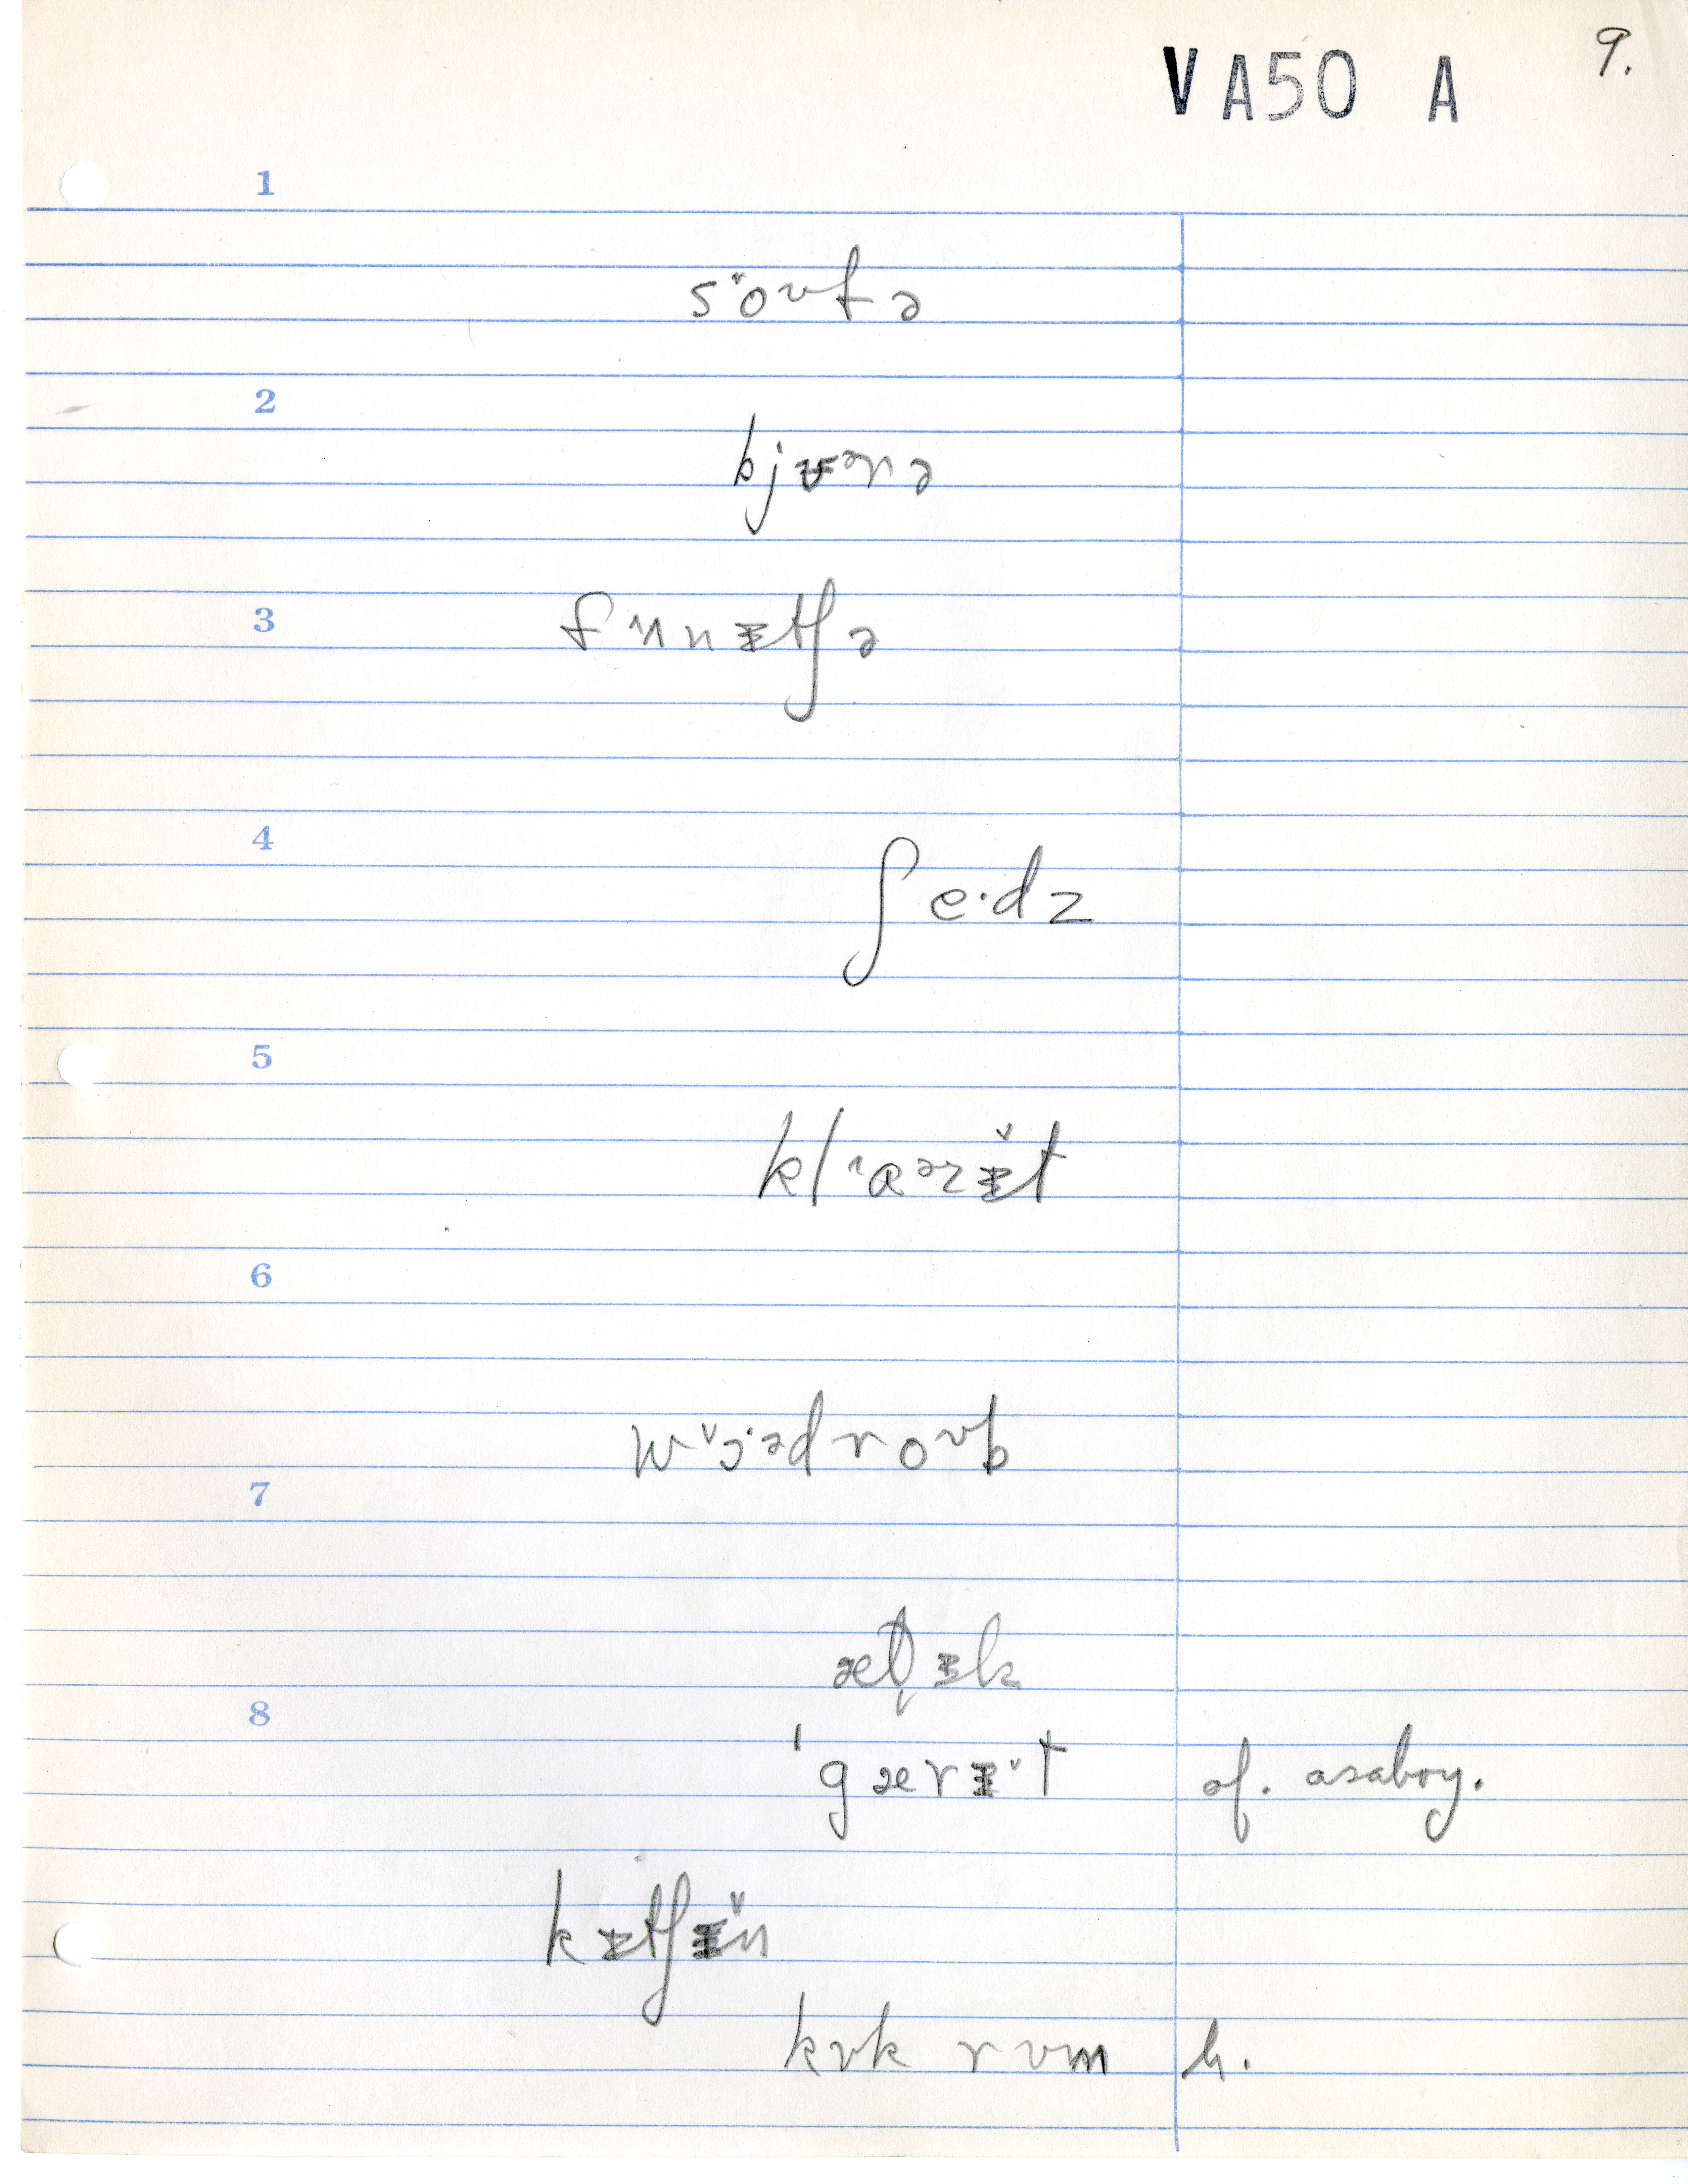 9.
VA50 A
1
so˅ʊfə
2
bjʊᵊrə
3
fɜnɪtʃə
4
ʃe·dz
5
klɑᵊzɪ̆t
6
wɔ·ədroʊb
7
ætɪk
8
ˈgærɪ̆t of. asaboy.
kɪtʃɪ̆n
kʊk rʊm h.